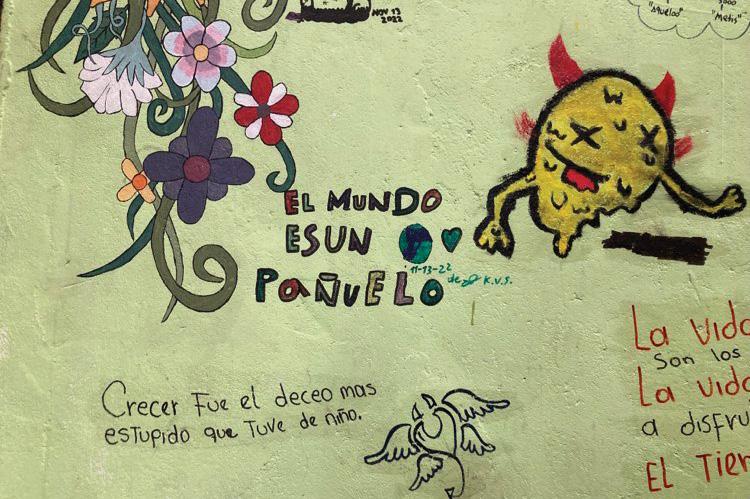 NOV 13
2022
5000
"Aqueloo"
"Metis"
EL MUNDO
ES UN
PAÑUELO
11-13-22
de K.V.S.
Crecer Fue el deceo mas
estupido que tuve de niño.
La vida
Son los
La vida
a disfru
EL Tiem